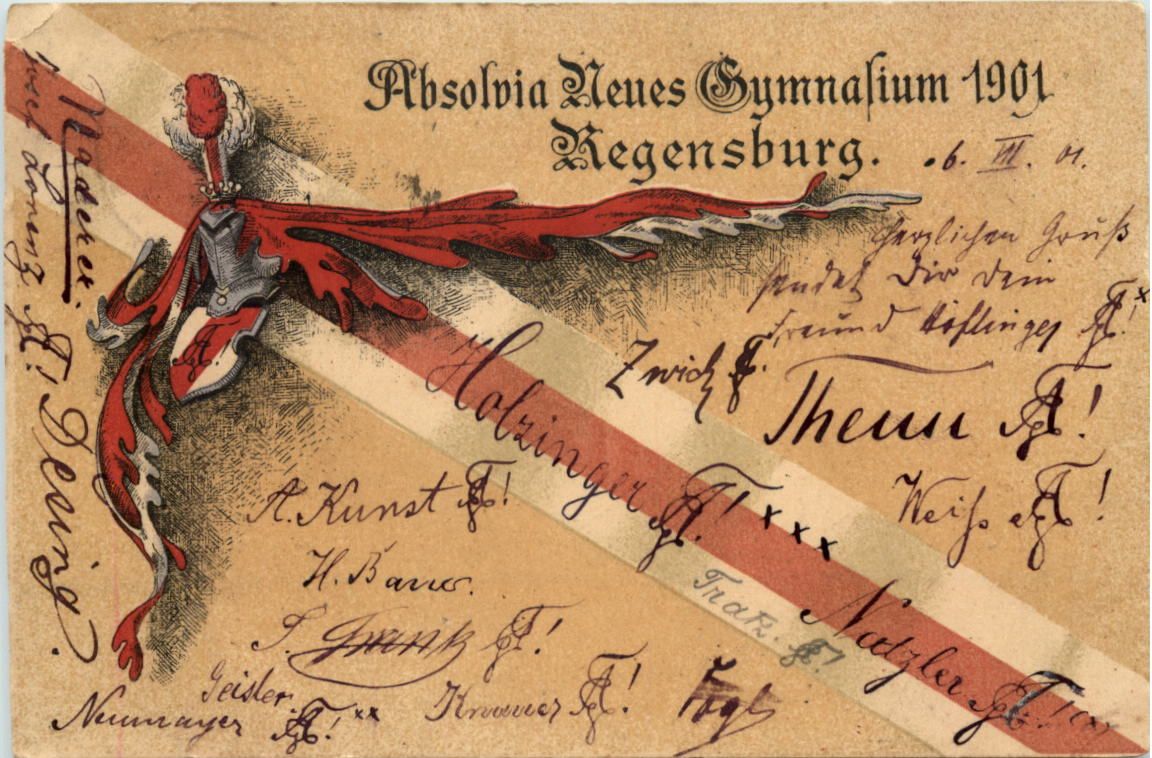 Absolvia Neues Gymnasium 1901
Regensburg.
6. VII. 01.
Herzlichen Gruß
sendet Dir Dein
Freund Höflinger
Zwick
Theuu
Holzinger xxx
Weiß
A. Kunst
H. Bauer.
S.
Tratz.
Natzler
Geisler.
Neumayer xx
Knauer
Vogl
Maderer.
Josef Lorenz
Desing.